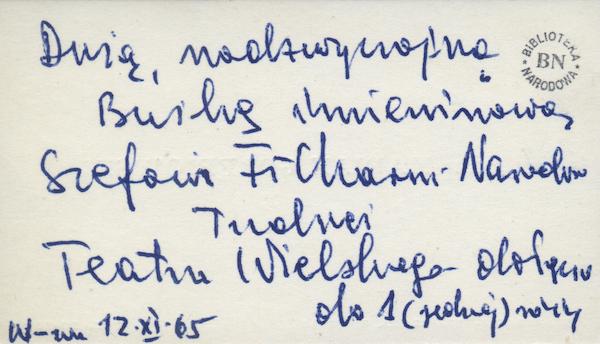 Dużą, nadzwyczajną
Buźkę imieninową
Szefowi Filharm. Narodow
Teatru Wielkiego
do 1 (jednej) róży
W-wa 12.XI.65
BIBLIOTEKA
BN
NARODOWA